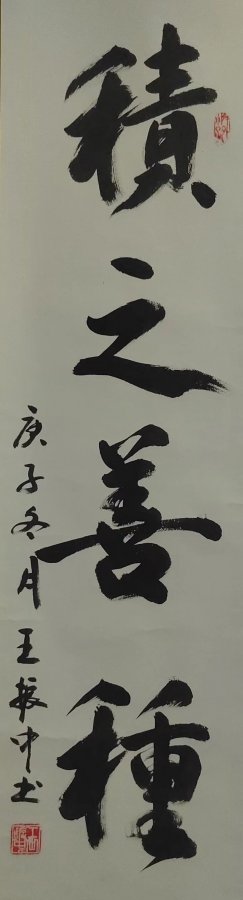 積之善種
庚子冬月王振中书